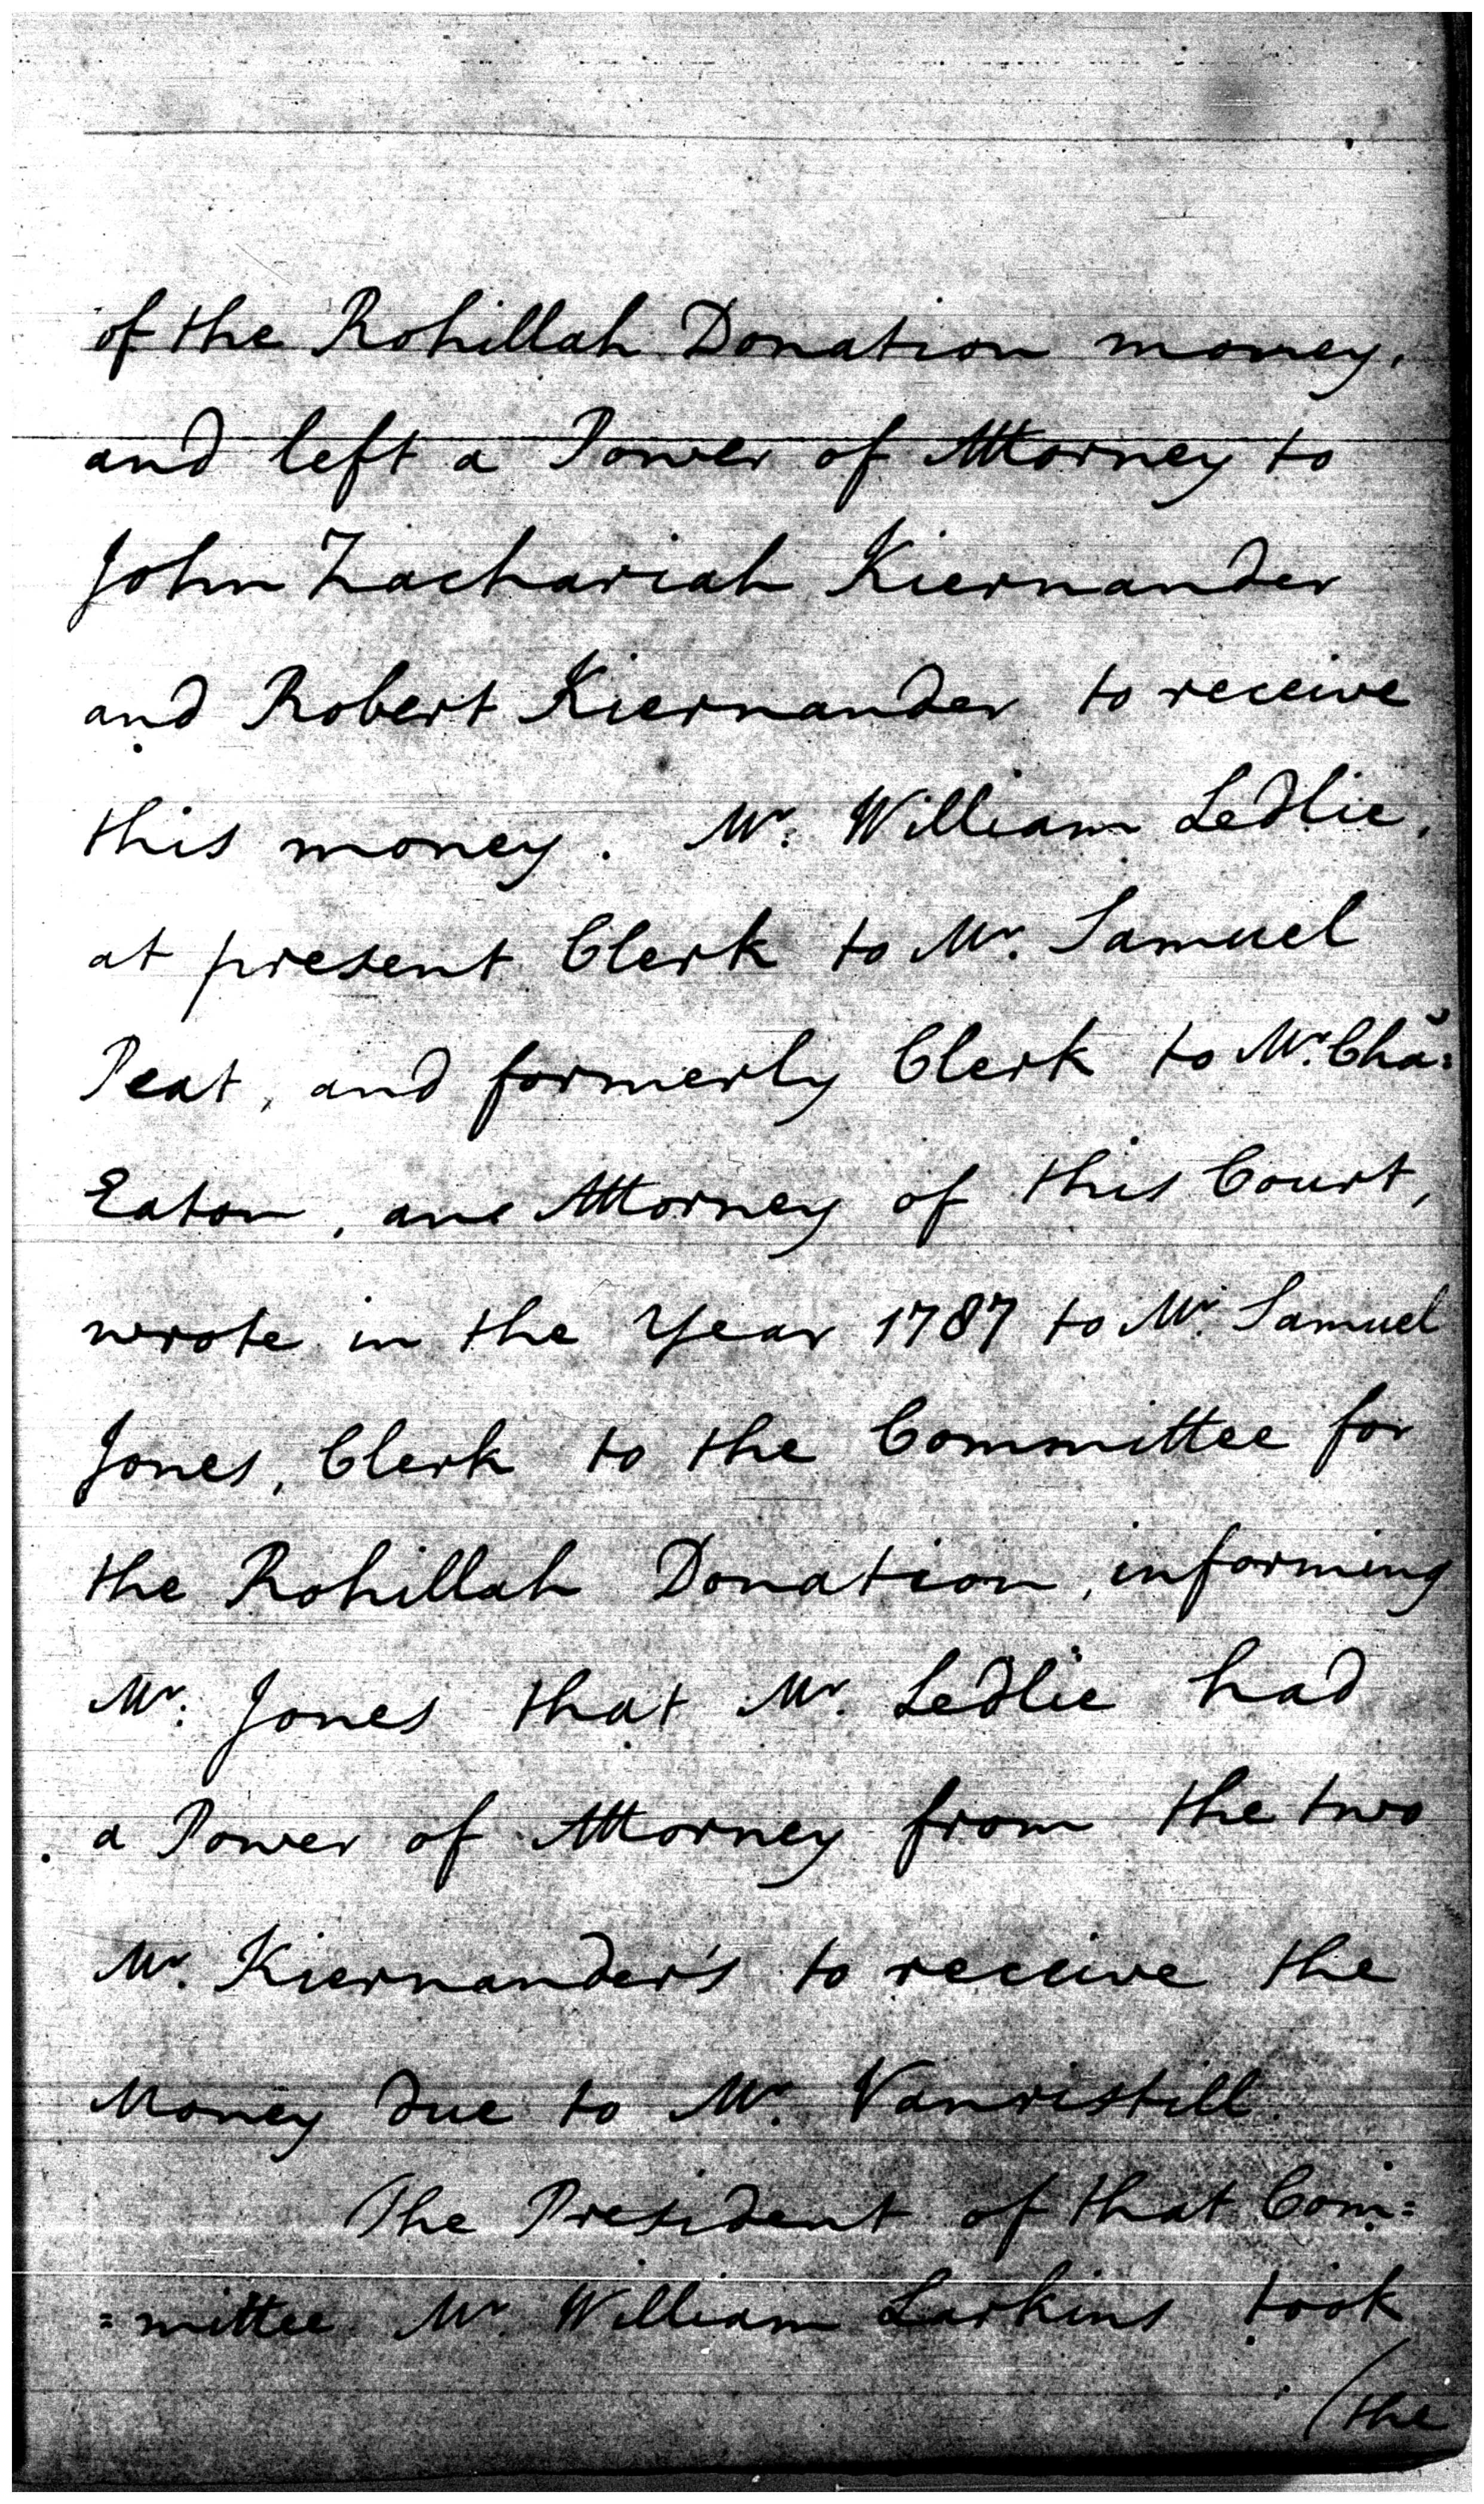 of the Rohillah Donation money,
and left a Power of Attorney to
John Zachariah Kiernander
and Robert Kiernander to receive
this money. Mr. William Ledlie,
at present Clerk to Mr. Samuel
Peat, and formerly Clerk to Mr. Cha:
Eaton, ane Attorney of this Court,
wrote in the Year 1787 to Mr. Samuel
Jones, Clerk to the Committee for
the Rohillah Donation, informing
Mr. Jones that Mr. Ledlie had
a Power of Attorney from the two
Mr. Kiernander's to receive the
Money due to Mr. Vanristill.
The President of that Com=
=mittee Mr. William Larkins took
(the